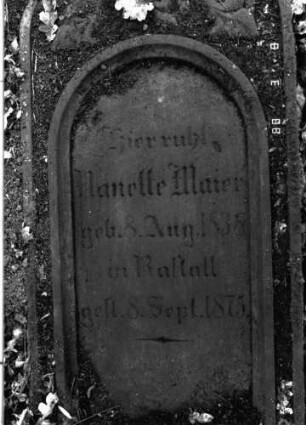 Hier ruht
Nanette Maier
geb. 8. Aug. 1838
in Rastatt
gest. 8. Sept. 1875.
8 3 '88